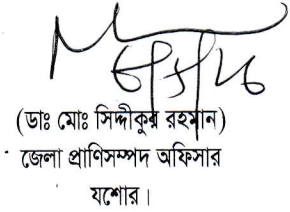 (ডাঃ মোঃ সিদ্দীকুর রহমান)
জেলা প্রাণিসম্পদ অফিসার
যশোর।